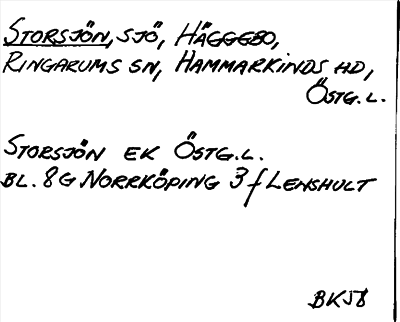 STORSJÖN, SJÖ, HÄGGEBO,
RINGARUMS SN, HAMMARKINDS HD,
ÖSTG.L.
STORSJÖN EK ÖSTG.L.
BL. 8G NORRKÖPING 3f LENSHULT
BK58